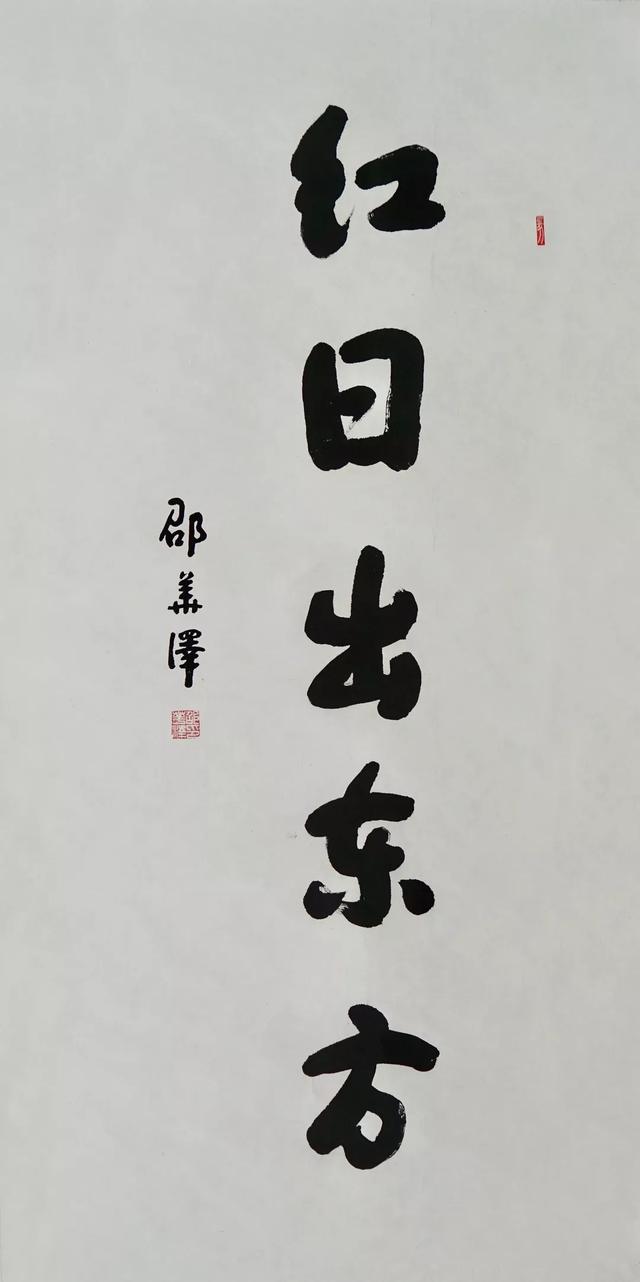 红日出东方
邵華澤